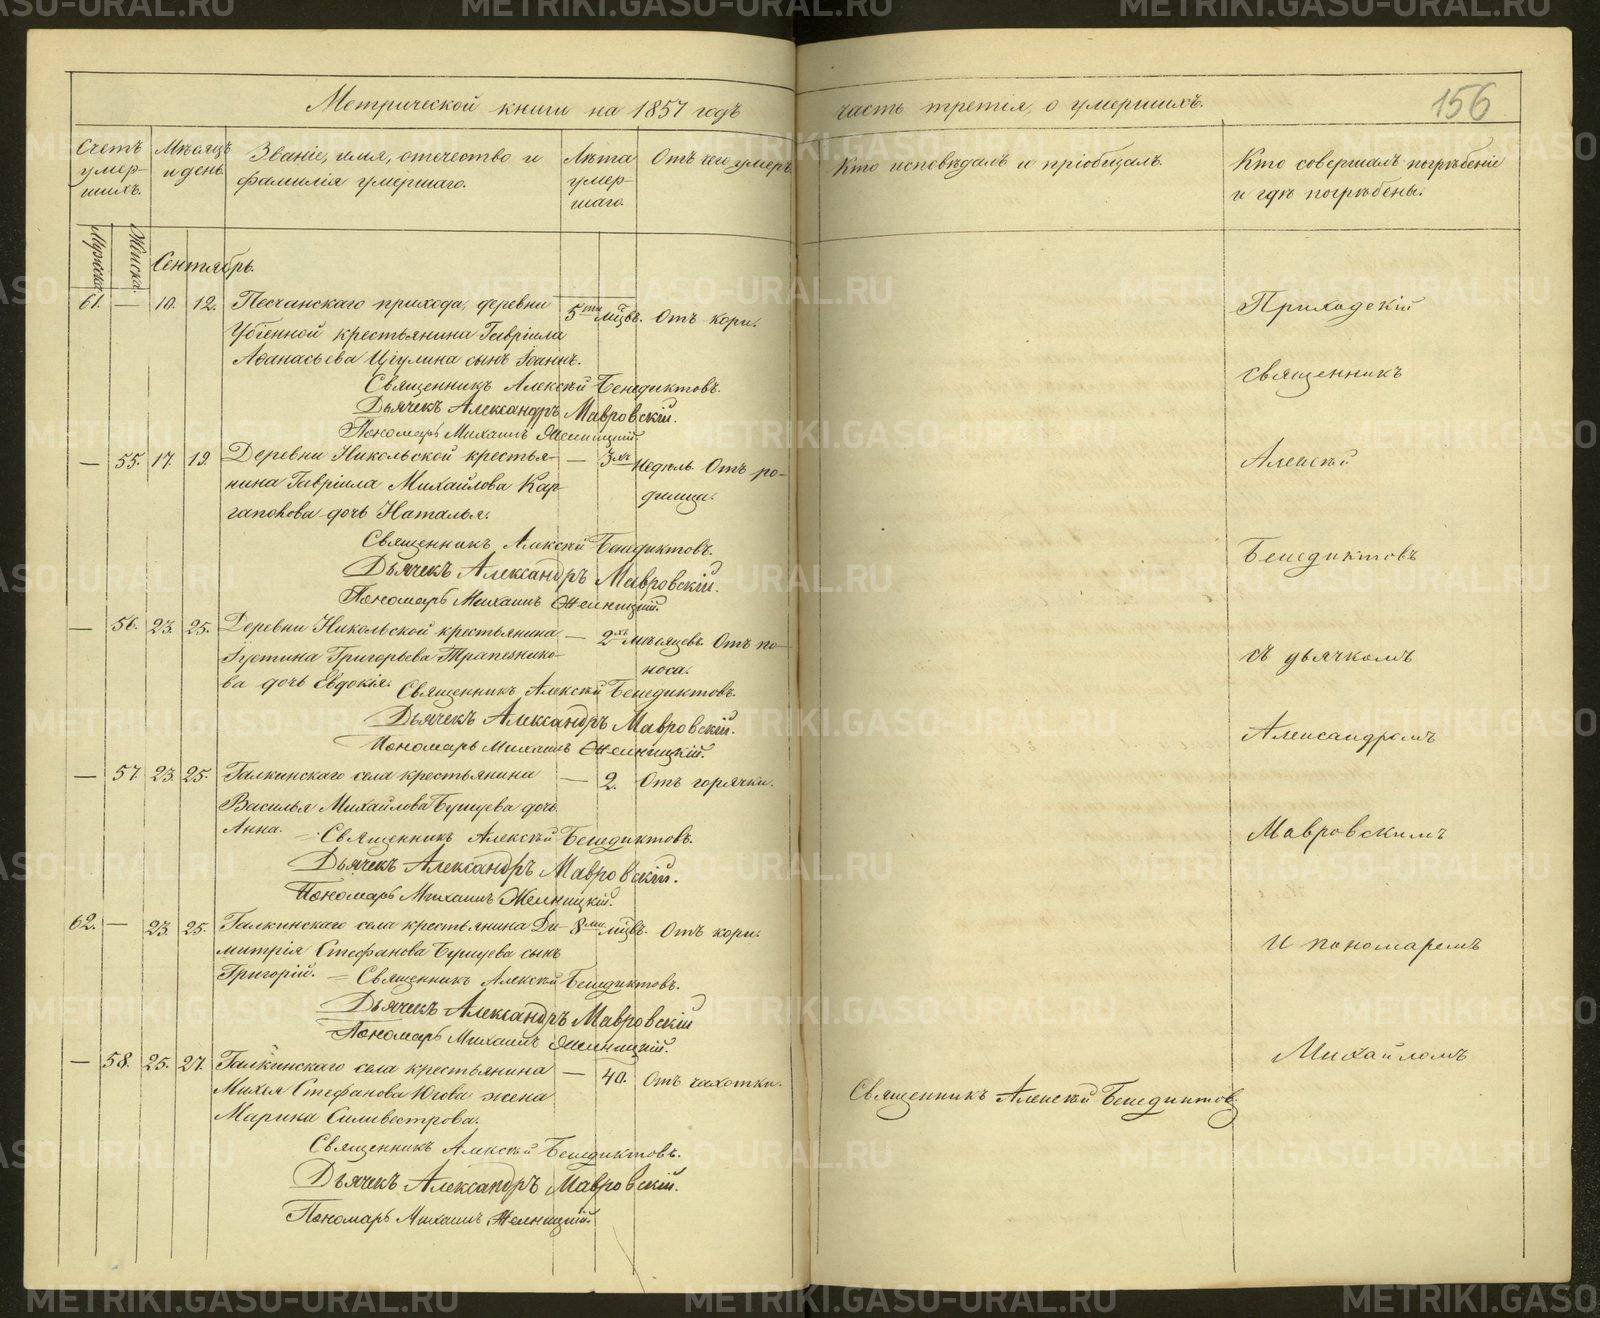 Метрической книги на 1857 годъ
часть третія, о умершихъ.
156
Счетъ умер-шихъ.
Мѣсяцъ и день.
Званіе, имя, отечество и
фамилія умершаго.
Лѣта умер-шаго.
Отъ чего умеръ
Кто исповѣдалъ и пріобщалъ.
Кто совершалъ погрѣбеніе
и гдѣ погрѣбены.
Мужска
Женска.
Сентябрь.
61. — 10. 12. Песчанскаго прихода, деревни 5ти мцвъ. Отъ кори.
Убіенной крестьянина Гавріила
Аѳанасьева Цгулина сынъ Іоаннъ.
Священникъ Алексѣй Бенедиктовъ.
Дьячекъ Александръ Мавровскій.
Пономарь Михаилъ Желницкій.
— 55. 17. 19. Деревни Никольской крестья- — 3хъ недѣль. Отъ ро-
нина Гавріила Михайлова Кар- димца.
гапокова дочь Наталья.
Священникъ Алексѣй Бенедиктовъ.
Дьячекъ Александръ Мавровскій.
Пономарь Михаилъ Желницкій.
— 56. 23. 25. Деревни Никольской крестьянина — 2хъ мѣсяцевъ. Отъ по-
Іустина Григорьева Трапезнико- носа.
ва дочь Евдокія. Священникъ Алексѣй Бенедиктовъ.
Дьячекъ Александръ Мавровскій.
Пономарь Михаилъ Желницкій.
— 57. 23. 25. Галкинскаго села крестьянина — 2. Отъ горячки.
Василья Михайлова Бушуева дочь
Анна. — Священникъ Алексѣй Бенедиктовъ.
Дьячекъ Александръ Мавровскій.
Пономарь Михаилъ Желницкій.
62. — 23. 25. Галкинскаго села крестьянина Ди- 8ми мцвъ. Отъ кори.
митрія Стефанова Бушуева сынъ
Григорій. — Священникъ Алексѣй Бенедиктовъ.
Дьячекъ Александръ Мавровскій
Пономарь Михаилъ Желницкій.
— 58. 25. 27. Галкинскаго села крестьянина — 40. Отъ чахотки.
Михея Стефанова Югова жена
Марина Силивестрова.
Священникъ Алексѣй Бенедиктовъ.
Дьячекъ Александръ Мавровскій.
Пономарь Михаилъ Желницкій
Приходскій
священникъ
Алексѣй
Бенедиктовъ
съ дьячкомъ
Александромъ
Мавровскимъ
и пономаремъ
Михайломъ
Священникъ Алексѣй Бенедиктовъ
METRIKI.GASO-URAL.RU